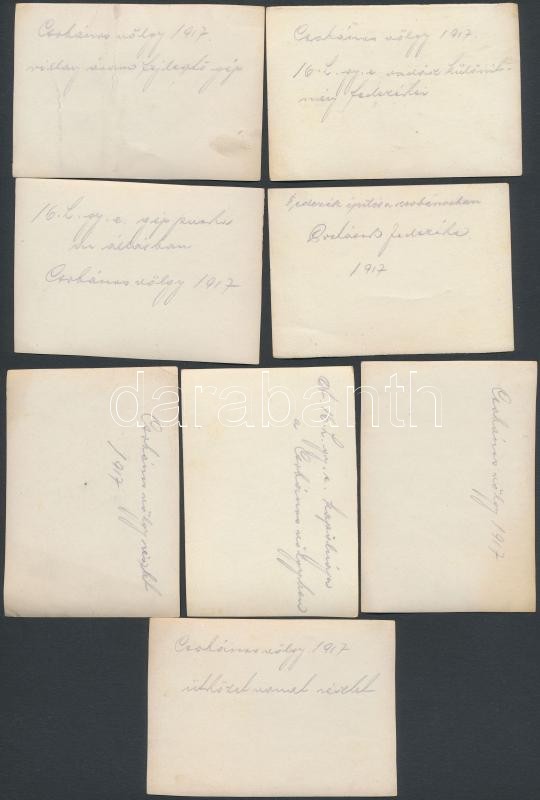 Csobános völgy 1917
villany áram fejlesztő gép
Csobános völgy 1917.
16. h. gy. e. vadász külőnít-
mény fedezékei
16 h. gy. e. géppuska
állásban
Csobános völgy 1917
Fedezék építés a csobánosban
fedezéke
1917
Csobános völgy részlet
1917
A 16. h. gy. e. kápolnája
a Csobános völgyben
Csobános völgy 1917
Csobános völgy 1917
ütközet vonal részlet
darabanth